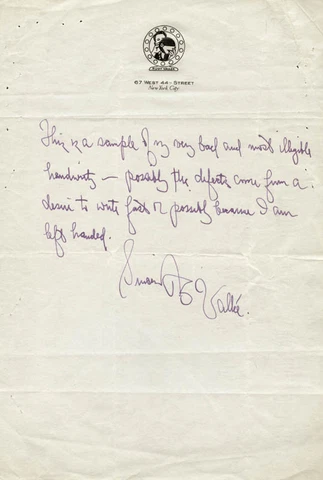 67 WEST 44 - STREET
New York City
This is a sample of my very bad and most illegible
handwritg — possibly the defects come from a
desire to write fast or possibly because I am
left handed.
Vallée.